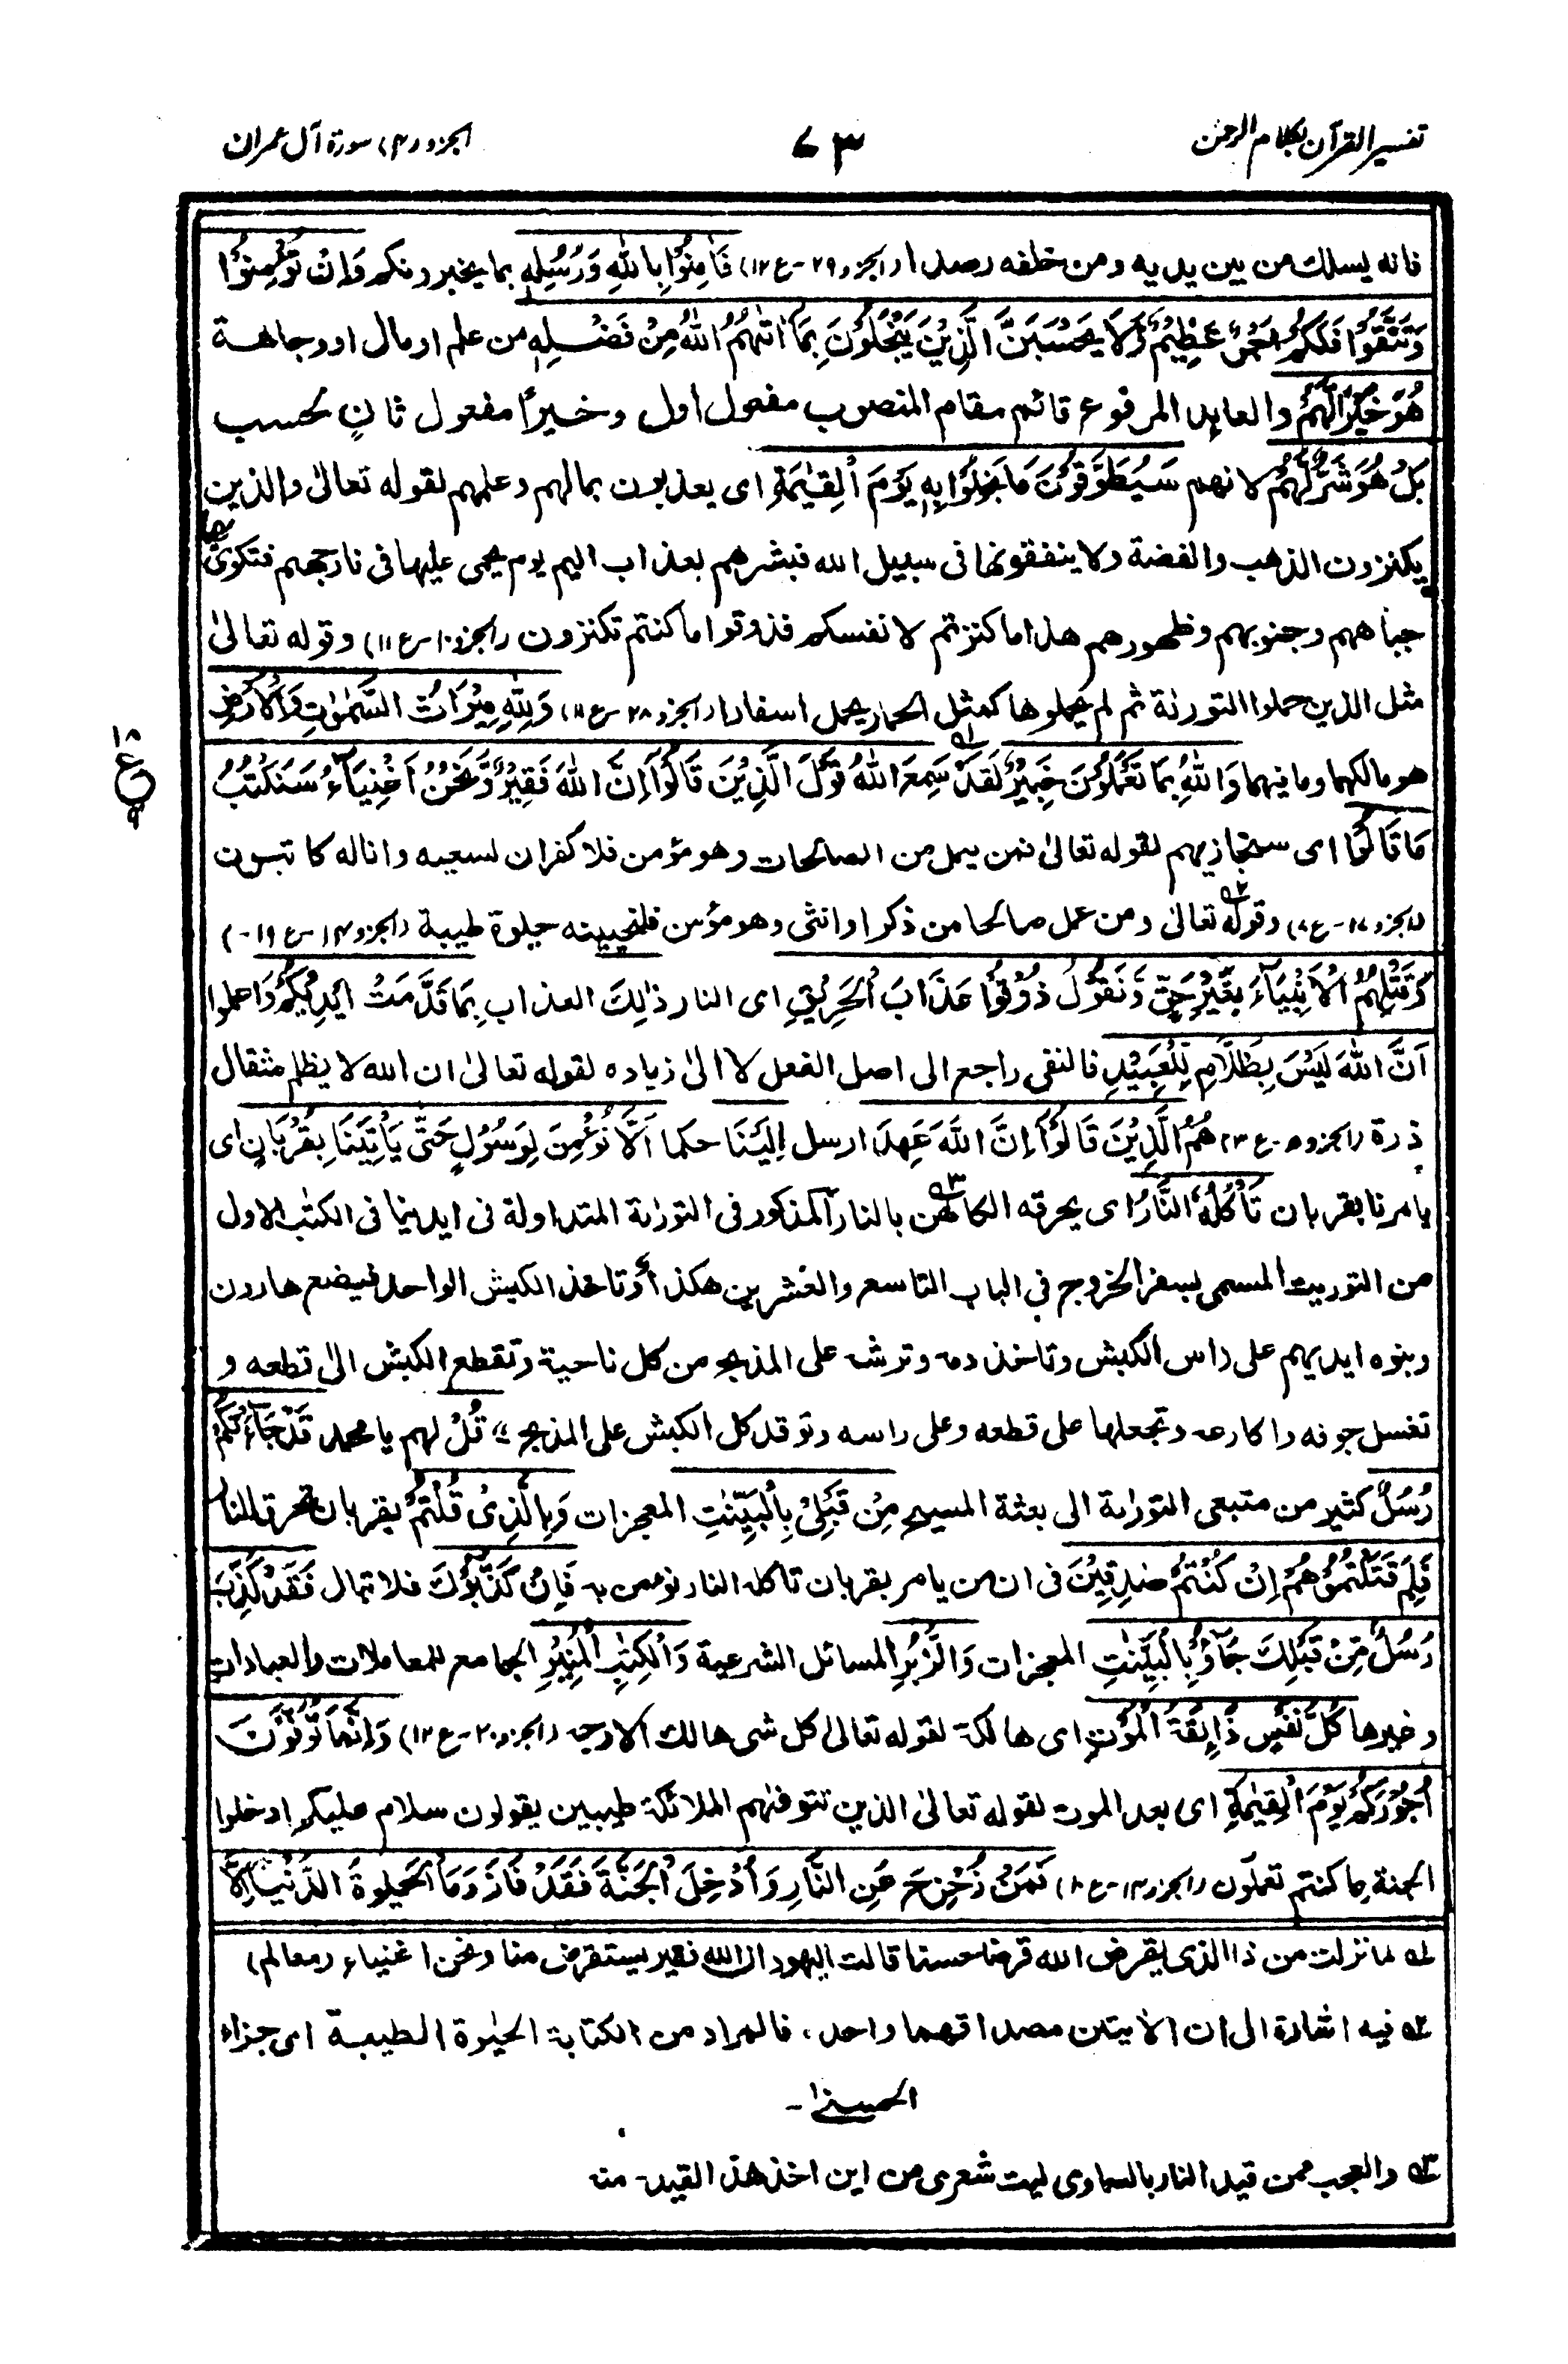 تفسير القرآن بكلام الرحمٰن
٧٣
الجزء (٤) سورة آل عمران
فانه يسلك من بين يديه ومن خلفه رصدا (الجزء ٢٩-ع ١٢) فَاٰمِنُوْا بِاللّٰهِ وَرُسُلِهٖ بما يخبرونكم وَاِنْ تُؤْمِنُوْا
وَتَتَّقُوْا فَلَكُمْ اَجْرٌ عَظِيْمٌ وَلَا يَحْسَبَنَّ الَّذِيْنَ يَبْخَلُوْنَ بِمَآ اٰتٰهُمُ اللّٰهُ مِنْ فَضْلِهٖ من علم او مال او وجاهة
هُوَ خَيْرًا لَّهُمْ والعايد المرفوع قائم مقام المنصوب مفعول اول وخيرًا مفعول ثانٍ لحسب
بَلْ هُوَ شَرٌّ لَّهُمْ لانهم سَيُطَوَّقُوْنَ مَا بَخِلُوْا بِهٖ يَوْمَ الْقِيٰمَةِ اى يعذبون بمالهم وعلمهم لقوله تعالىٰ والذين
يكنزون الذهب والفضة ولا ينفقونها فى سبيل الله فبشرهم بعذاب اليم يوم يحمى عليها فى نار جهنم فتكوىٰ بها
جباههم وجنوبهم وظهورهم هذا ما كنزتم لانفسكم فذوقوا ما كنتم تكنزون (الجزء ١٠-ع ١١) وقوله تعالىٰ
مثل الذين حملوا التورىٰة ثم لم يحملوها كمثل الحمار يحمل اسفارا (الجزء ٢٨-ع ١١) وَلِلّٰهِ مِيْرَاثُ السَّمٰوٰتِ وَالْاَرْضِ
هو مالكهما وما فيهما وَاللّٰهُ بِمَا تَعْمَلُوْنَ خَبِيْرٌ لَقَدْ سَمِعَ اللّٰهُ قَوْلَ الَّذِيْنَ قَالُوْٓا اِنَّ اللّٰهَ فَقِيْرٌ وَّنَحْنُ اَغْنِيَآءُ سَنَكْتُبُ
١٨
ع
٩
مَا قَالُوْا اى سنجازيهم لقوله تعالىٰ فمن يعمل من الصالحات وهو مؤمن فلا كفران لسعيه وانا له كاتبون
(الجزء ١٧-ع ٧) وقوله تعالىٰ ومن عمل صالحا من ذكر او انثى وهو مؤمن فلنحيينه حيٰوة طيبة (الجزء ١٤-ع ١٩-)
وَقَتْلَهُمُ الْاَنْبِيَآءَ بِغَيْرِ حَقٍّ وَّنَقُوْلُ ذُوْقُوْا عَذَابَ الْحَرِيْقِ اى النار ذٰلِكَ العذاب بِمَا قَدَّمَتْ اَيْدِيْكُمْ واعملوا
اَنَّ اللّٰهَ لَيْسَ بِظَلَّامٍ لِّلْعَبِيْدِ فالنفى راجع الى اصل الفعل لا الىٰ زيادة لقوله تعالىٰ ان الله لا يظلم مثقال
ذرة (الجزء ٥-ع ٣) هُمُ الَّذِيْنَ قَالُوْٓا اِنَّ اللّٰهَ عَهِدَ ارسل اِلَيْنَا حكما اَلَّا نُؤْمِنَ لِرَسُوْلٍ حَتّٰى يَاْتِيَنَا بِقُرْبَانٍ اى
يامرنا بقربان تَاْكُلُهُ النَّارُ اى يحرقه الكاهن بالنار المذكور فى التورٰىة المتداولة فى ايدينا فى الكتٰب الاول
من التوريت المسمى بسفر الخروج فى الباب التاسع والعشرين هكذا "وتاخذ الكبش الواحد فيضع هارون
وبنوه ايديهم على راس الكبش وتاخذ دمه وترشه على المذبح من كل ناحية وتقطع الكبش الىٰ قطعه و
تغسل جوفه واكارعه وتجعلها على قطعه وعلى راسه وتوقد كل الكبش على المذبح" قُلْ لهم يا محمد قَدْ جَآءَكُمْ
رُسُلٌ كثير من متبعى التورٰىة الى بعثة المسيح مِّنْ قَبْلِيْ بِالْبَيِّنٰتِ المعجزات وَبِالَّذِيْ قُلْتُمْ بقربان تحرق للنار
فَلِمَ قَتَلْتُمُوْهُمْ اِنْ كُنْتُمْ صٰدِقِيْنَ فى ان من يامر بقربان تاكله النار نومن به فَاِنْ كَذَّبُوْكَ فلا تبال فَقَدْ كُذِّبَ
رُسُلٌ مِّنْ قَبْلِكَ جَآءُوْ بِالْبَيِّنٰتِ المعجزات وَالزُّبُرِ المسائل الشرعية وَالْكِتٰبِ الْمُنِيْرِ الجامع للمعاملات والعبادات
وغيرها كُلُّ نَفْسٍ ذَآئِقَةُ الْمَوْتِ اى هالكة لقوله تعالىٰ كل شىء هالك الا وجهه (الجزء ٢٠-ع ١٢) وَاِنَّمَا تُوَفَّوْنَ
اُجُوْرَكُمْ يَوْمَ الْقِيٰمَةِ اى بعد الموت لقوله تعالىٰ الذين تتوفٰهم الملائكة طيبين يقولون سلام عليكم ادخلوا
الجنة بما كنتم تعملون (الجزء ١٤-ع ١٠) فَمَنْ زُحْزِحَ عَنِ النَّارِ وَاُدْخِلَ الْجَنَّةَ فَقَدْ فَازَ وَمَا الْحَيٰوةُ الدُّنْيَآ اِلَّا
١ لما نزلت من ذا الذى يقرض الله قرضا حسنا قالت اليهود ان الله فقير يستقرض منا ونحن اغنياء (معالم)
٢ فيه اشارة الى ان الايتين مصداقهما واحد، فالمراد من الكتابة الحيٰوة الطيبة اى جزاء
الحسنىٰ-
٣ والعجب ممن قيد النار بالسماوى ليت شعرى من اين اخذ هذ القيد- منه